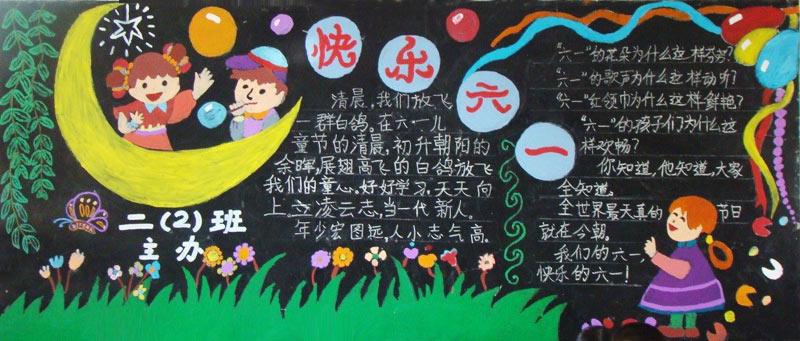 快乐六一
清晨,我们放飞
一群白鸽,在六一儿
童节的清晨,初升朝阳的
余晖,展翅高飞的白鸽放飞
我们的童心,好好学习,天天向
上,立凌云志,当一代新人。
年少宏图远,人小志气高。
二(2)班
主办
“六一”的花朵为什么这样芬芳?
“六一”的歌声为什么这样动听?
“六一”红领巾为什么这样鲜艳?
“六一”的孩子们为什么这
样欢畅?
你知道,他知道,大家
全知道。
全世界最天真的节日
就在今朝。
我们的六一,
快乐的六一!